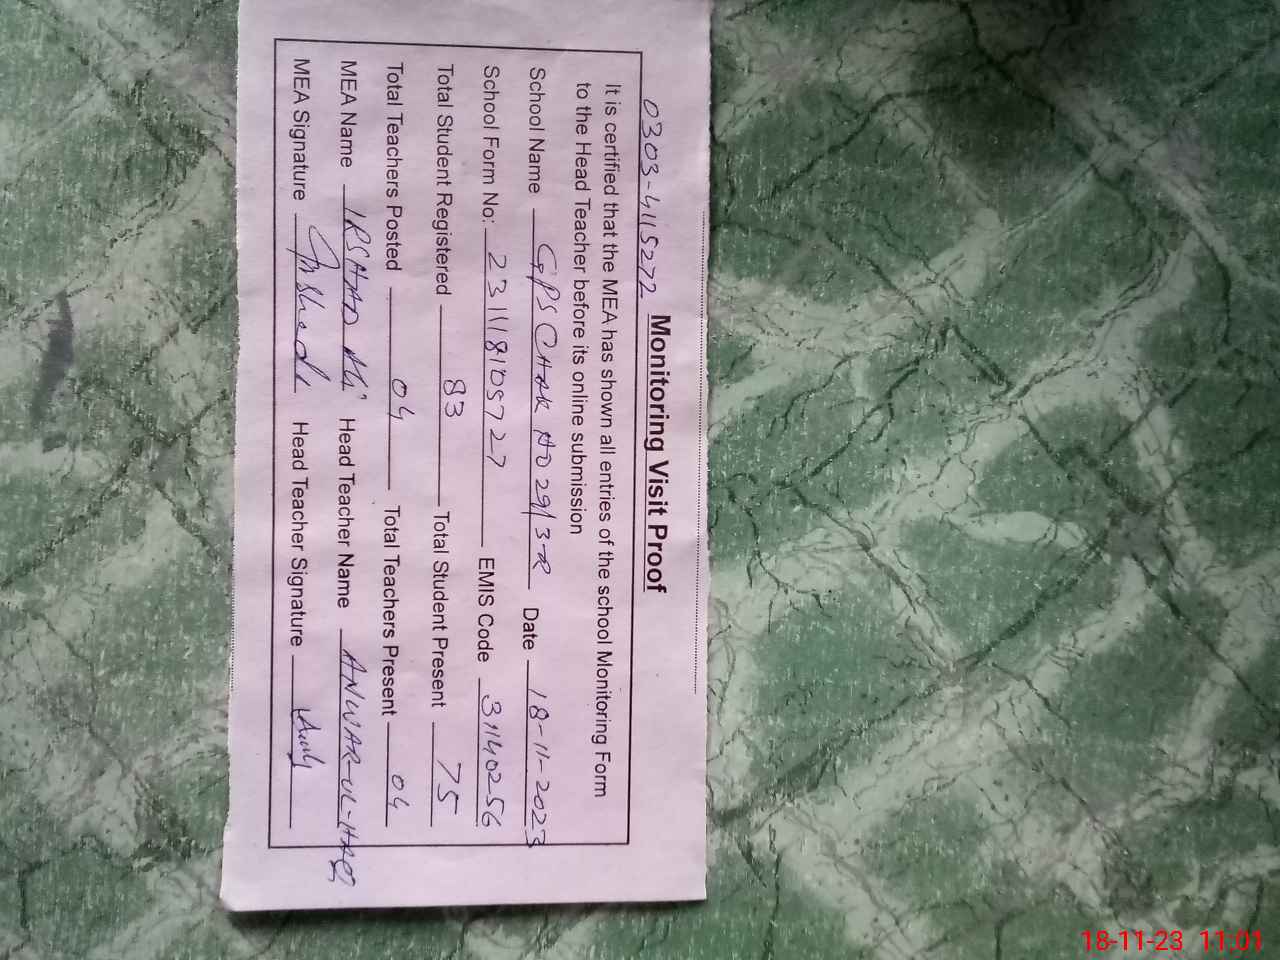 0303-4115272
Monitoring Visit Proof
It is certified that the MEA has shown all entries of the school Monitoring Form
to the Head Teacher before its online submission
School Name GPS CHAK NO 29/3-R Date 18-11-2023
School Form No: 23111810572-7 EMIS Code 31140256
Total Student Registered 83 Total Student Present 75
Total Teachers Posted 04 Total Teachers Present 04
MEA Name IRSHAD Ali Head Teacher Name ANWAR-UL-HAQ
MEA Signature Irshad Head Teacher Signature
18-11-23 11:01